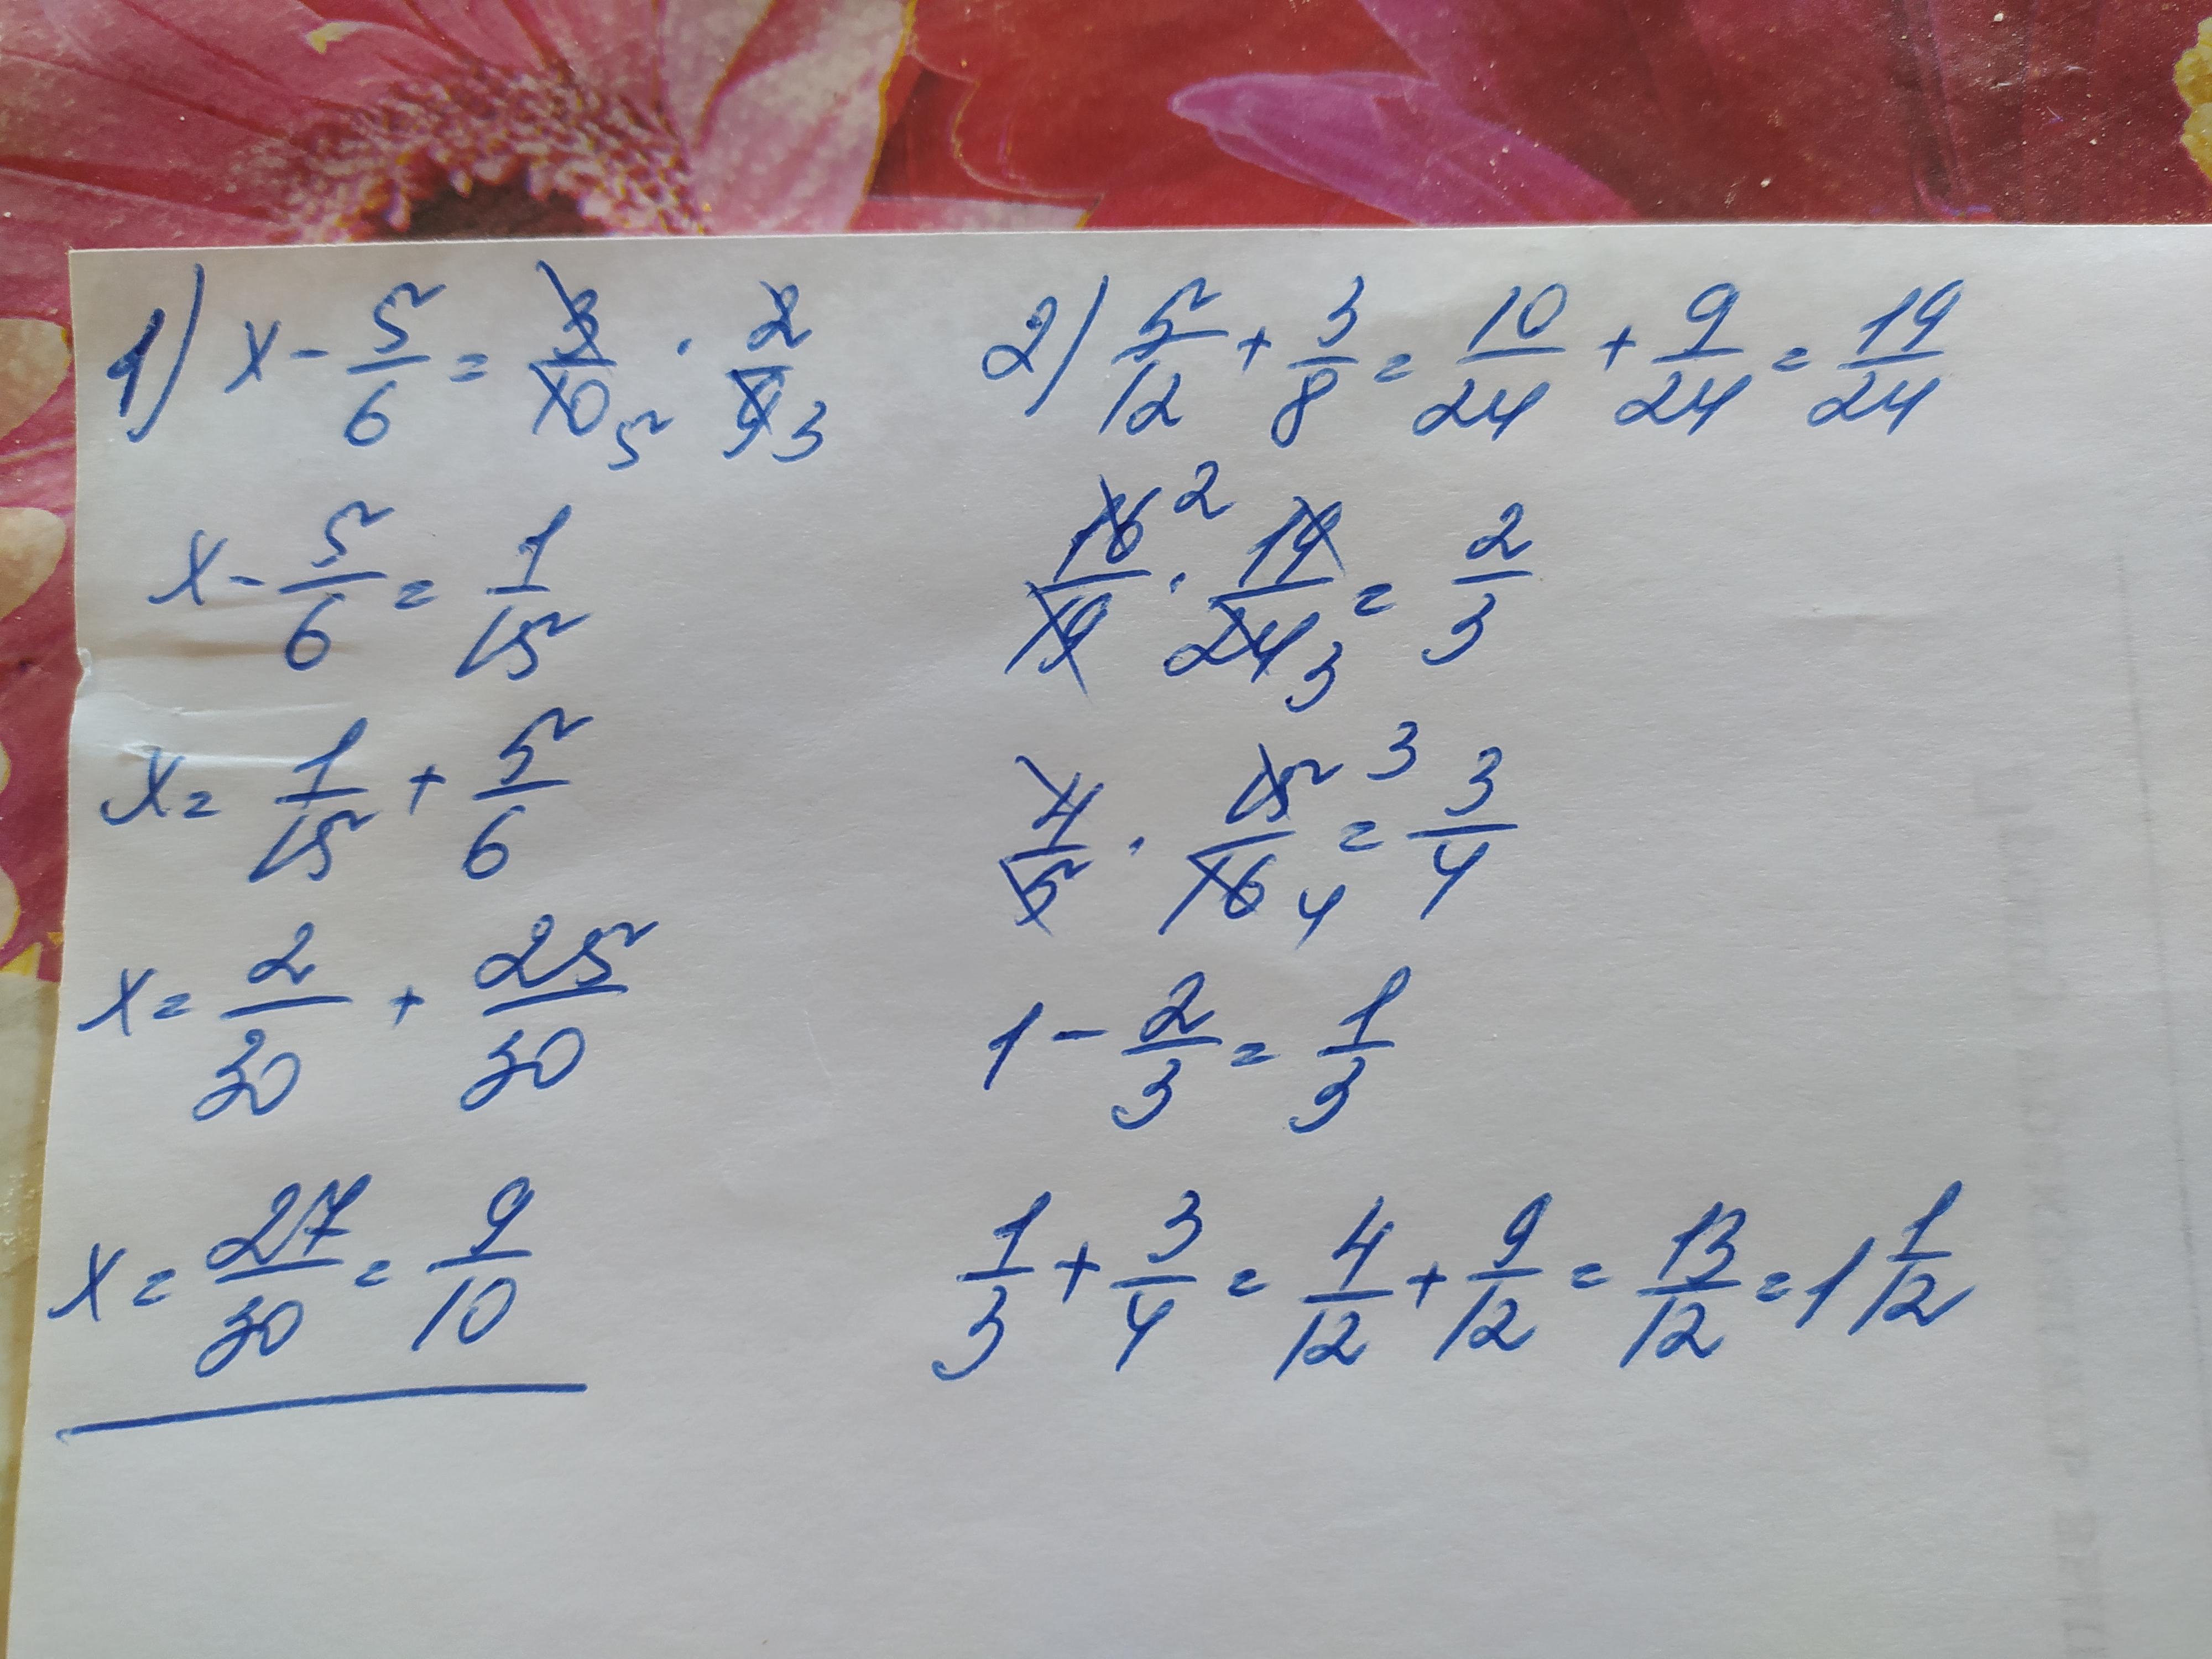 1) x - 5/6 = 3/10 5 · 2/9 3
x - 5/6 = 1/15
x = 1/15 + 5/6
x = 2/30 + 25/30
x = 27/30 = 9/10
2) 5/12 + 3/8 = 10/24 + 9/24 = 19/24
16/19 2 · 19/24 3 = 2/3
4/5 · 15/16 3 4 = 3/4
1 - 2/3 = 1/3
1/3 + 3/4 = 4/12 + 9/12 = 13/12 = 1 1/12